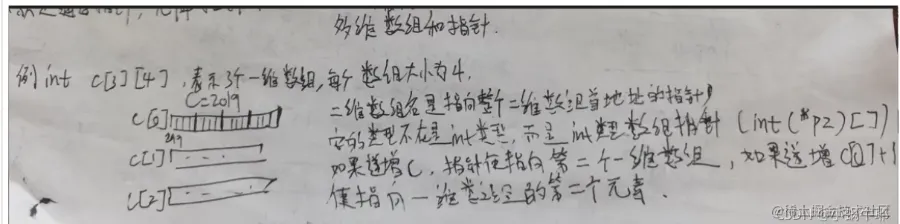 多维数组和指针.
例 int c[3][4],表示3个一维数组,每个数组大小为4.
C=2019
c[0]
2019
c[1]
c[2]
二维数组名是指向整个二维数组首地址的指针,
它的类型不在是int类型,而是int类型数组指针 (int(*p2)[])
如果递增C,指针便指向第二个一维数组,如果递增c[0]+1
便指向一维数组的第二个元素.
@稀土掘金技术社区